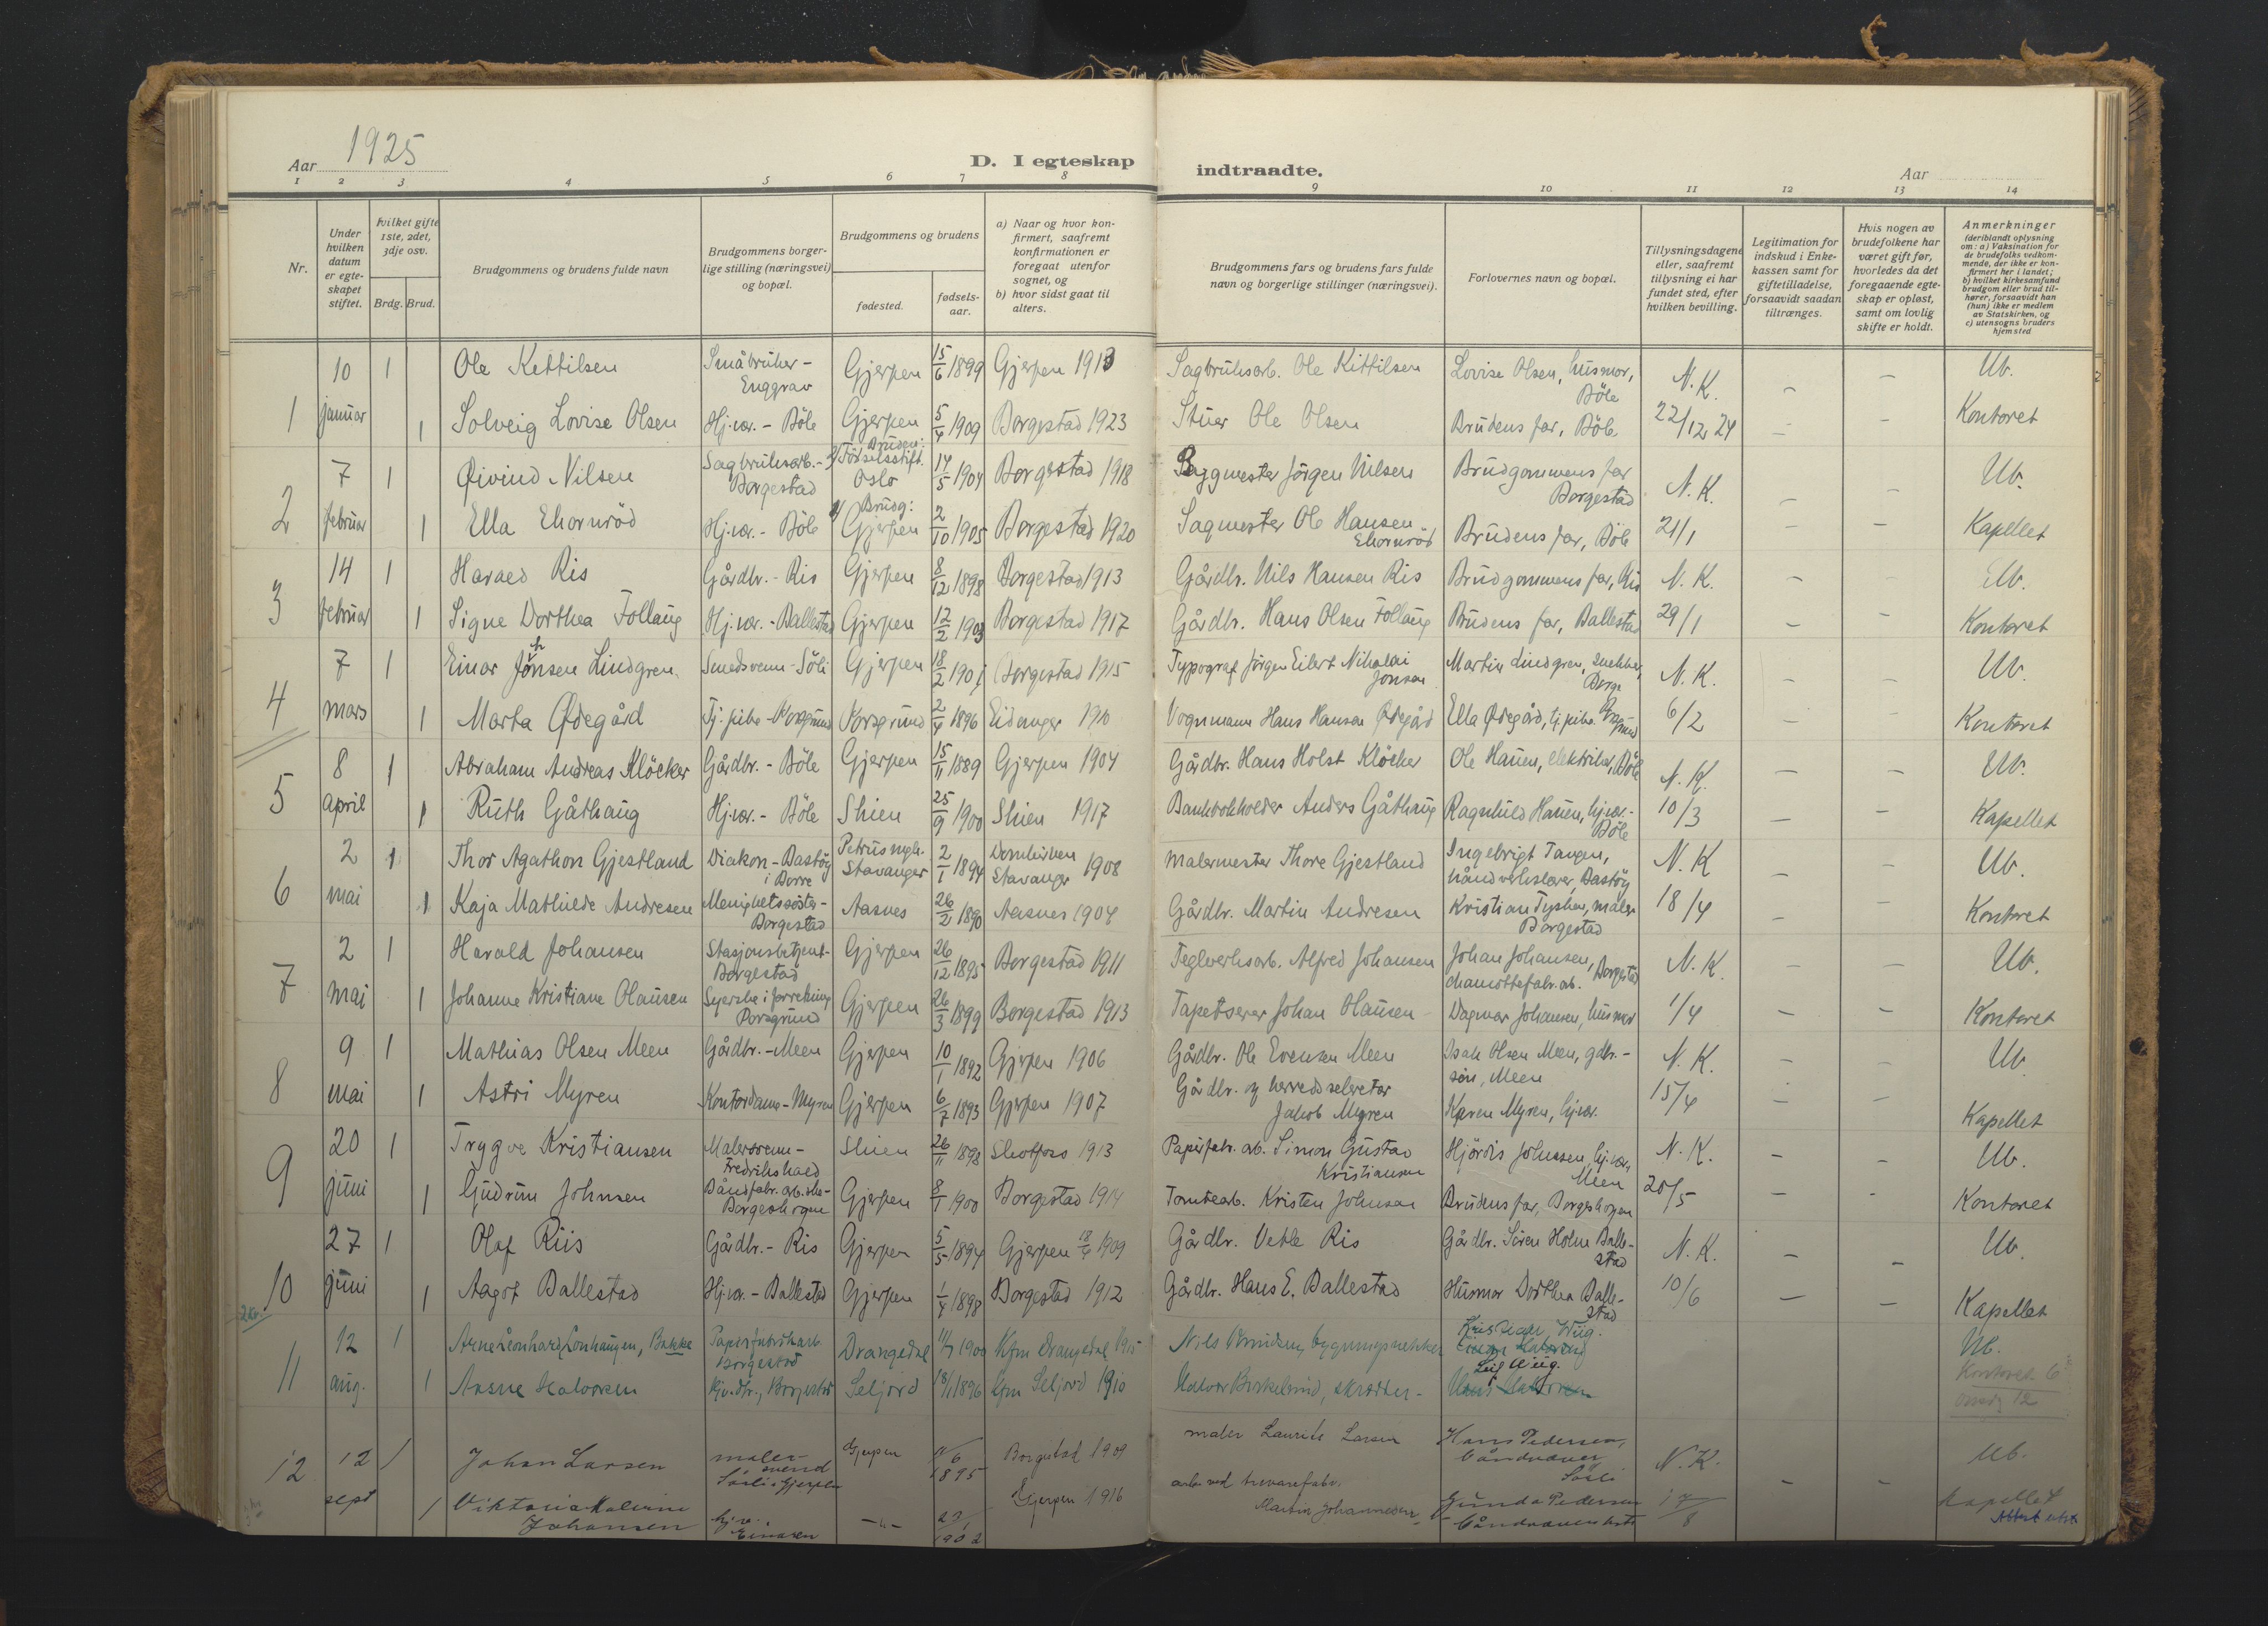 1925
Aar
D. I egteskap indtraadte.
Aar
1 2 3 4 5 6 7 8 9 10 11 12 13 14
Nr.
Under hvilken datum er egteskapet stiftet.
hvilket gifte 1ste, 2det, 3dje osv.
Brdg. Brud.
Brudgommens og brudens fulde navn
Brudgommens borgerlige stilling (næringsvei) og bopæl.
Brudgommens og brudens
fødested.
fødselsaar.
a) Naar og hvor konfirmert, saafremt konfirmationen er foregaat utenfor sognet, og
b) hvor sidst gaat til alters.
Brudgommens fars og brudens fars fulde navn og borgerlige stillinger (næringsvei).
Forlovernes navn og bopæl.
Tillysningsdagene eller, saafremt tillysning ei har fundet sted, efter hvilken bevilling.
Legitimation for indskud i Enkekassen samt for giftetilladelse, forsaavidt saadan tiltrænges.
Hvis nogen av brudefolkene har været gift før, hvorledes da det foregaaende egteskap er opløst, samt om lovlig skifte er holdt.
Anmerkninger (deriblandt oplysning om: a) Vaksination for de brudefolks vedkommende, der ikke er konfirmert her i landet; b) hvilket kirkesamfund brudgom eller brud tilhører, forsaavidt han (hun) ikke er medlem av Statskirken, og c) utensogns bruders hjemsted
1 10 januar 1 Ole Kettilsen Småbruker - Enggrav Gjerpen 15/6 1899 Gjerpen 1913 Sagbruksarb. Ole Kittilsen Lovise Olsen, husmor, Böle N.K. - - Ub.
1 Solveig Lovise Olsen Hj.vær. - Böle Gjerpen 5/4 1909 Borgestad 1923 Stuer Ole Olsen Brudens far, Böle 22/12 24 - - Kontoret
2 7 februar 1 Øivind Nilsen Sagbruksarb. - Borgestad Bruden: Födselsstift. Oslo 14/5 1904 Borgestad 1918 Byggmester Jörgen Nilsen Brudgommens far Borgestad N.K. - - Ub.
1 Ella Ekornröd Hj.vær. - Böle Brudg: Gjerpen 2/10 1905 Borgestad 1920 Sagmester Ole Hansen Ekornröd Brudens far, Böle 21/1 - - Kapellet
3 14 februar 1 Harald Ris Gårdbr. - Ris Gjerpen 8/12 1898 Borgestad 1913 Gårdbr. Nils Hansen Ris Brudgommens far, Ris N.K. - - Ub.
1 Signe Dorthea Follaug Hj.vær. - Ballestad Gjerpen 12/2 1903 Borgestad 1917 Gårdbr. Hans Olsen Follaug Brudens far, Ballestad 29/1 - - Kontoret
4 7 mars 1 Einar Jönsen Lindgren Smedsvenn - Söli Gjerpen 18/2 1901 Borgestad 1915 Typograf Jörgen Eilert Nikolai Jonsen Martin Lindgren, snekker, Borge N.K. - - Ub.
1 Marta Ødegård Tj.pike - Porsgrund Porsgrund 2/4 1896 Eidanger 1910 Vognmann Hans Hansen Ødegård Ella Ødegård, tj.pike Porsgrund 6/2 - - Kontoret
5 8 april 1 Abraham Andreas Klöcker Gårdbr. - Böle Gjerpen 15/11 1889 Gjerpen 1904 Gårdbr. Hans Holst Klöcker Ole Hauen, elektriker, Böle N.K. - - Ub.
1 Ruth Gåthaug Hj.vær. - Böle Skien 25/9 1900 Skien 1917 Bankbokholder Anders Gåthaug Ragnhild Hauen, hj.vær. - Böle 10/3 - - Kapellet
6 2 mai 1 Thor Agathon Gjestland Diakon - Bastöy i Borre Petrus mgh. Stavanger 2/1 1894 Domkirken Stavanger 1908 malermester Thore Gjestland Ingebrigt Tangen, håndverkslærer, Bastöy N.K - - Ub.
1 Kaja Mathilde Andresen Menighetssöster - Borgestad Aasnes 26/2 1890 Aasnes 1904 Gårdbr. Martin Andresen Kristian Tysker, maler Borgestad 18/4 - - Kontoret
7 2 mai 1 Harald Johansen Stasjonsbetjent - Borgestad Gjerpen 26/12 1895 Borgestad 1911 Teglverksarb. Alfred Johansen Johan Johansen, chamottefabr.arb. Borgestad N.K. - - Ub.
1 Johanne Kristiane Olausen Syerske i forretning Porsgrund Gjerpen 26/3 1899 Borgestad 1913 Tapetserer Johan Olausen Dagmar Johansen, husmor 1/4 - - Kontoret
8 9 mai 1 Mathias Olsen Meen Gårdbr. - Meen Gjerpen 10/1 1892 Gjerpen 1906 Gårdbr. Ole Evensen Meen Isak Olsen Meen, gdbr.- sön, Meen N.K. - - Ub.
1 Astri Myren Kontordame - Myren Gjerpen 6/7 1893 Gjerpen 1907 Gårdbr. og herredssekretær Jakob Myren Karen Myren, hj.vær. 15/4 - - Kapellet
9 20 juni 1 Trygve Kristiansen Malersvenn - Fredrikshald Skien 26/11 1898 Skotfoss 1913 Papirfabr.arb. Simon Gustav Kristiansen Hjördis Johnsen, hj.vær. Meen N.K. - - Ub.
1 Gudrun Johnsen Båndfabr.arb.ske - Borgeskogen Gjerpen 8/1 1900 Borgestad 1914 Tomtearb. Kristen Johnsen Brudens far, Borgeskogen 20/5 - - Kontoret
10 27 juni 1 Olaf Riis Gårdbr. - Ris Gjerpen 5/5 1894 Gjerpen 18/4 1909 Gårdbr. Vetle Ris Gårdbr. Sören Holm Ballestad N.K. - - Ub.
1 Aagot Ballestad Hj.vær. - Ballestad Gjerpen 1/4 1898 Borgestad 1912 Gårdbr. Hans E. Ballestad Husmor Dorthea Ballestad 10/6 - - Kapellet
11 12 aug. 1 Arne Leonhard Lonhaugen, Bakke Papirfabrikarb. Borgestad Drangedal 11/7 1900 Kfm Drangedal 1915 Nils Kristian Wiig. Ub.
1 Aasne Halvorsen Borgestad Seljord 18/1 1896 Kfm Seljord 1910 Halvor skrædder - Leif Wiig. Kontoret
12 12 sept 1 Johan Larsen maler- svend Gjerpen 11/6 1895 Borgestad 1909 maler Laurits Larsen Hans Pedersen, Söli N.K. - - Ub.
1 Viktoria Johansen -"- 1902 Gjerpen 1916 arb. ved trevarefabr. Martin Johannesen Gunda Pedersen 17/8 Kapellet